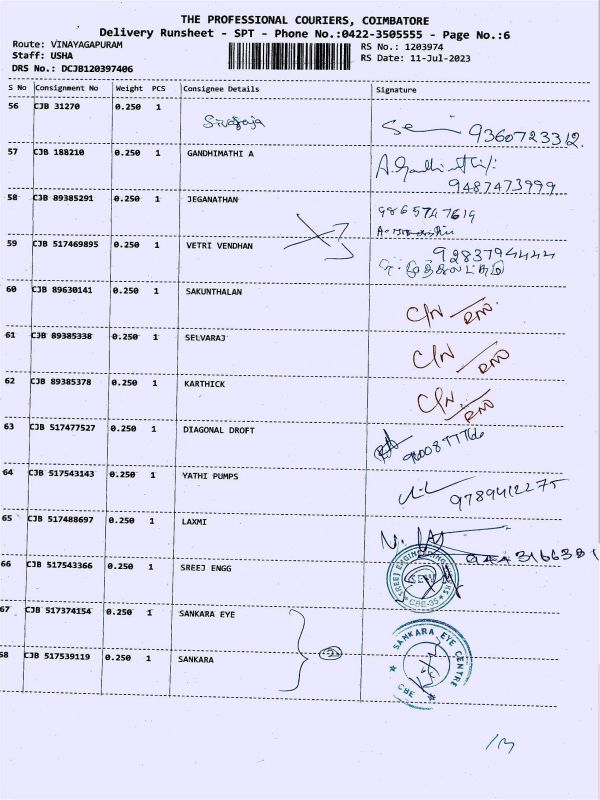 THE PROFESSIONAL COURIERS, COIMBATORE
Delivery Runsheet - SPT - Phone No.:0422-3505555 - Page No.:6
Route: VINAYAGAPURAM RS No.: 1203974
Staff: USHA RS Date: 11-Jul-2023
DRS No.: DCJB120397406
S No Consignment No Weight PCS Consignee Details Signature
56 CJB 31270 0.250 1 9360723312.
57 CJB 188210 0.250 1 GANDHIMATHI A
9487473999
58 CJB 89385291 0.250 1 JEGANATHAN 9865747619
59 CJB 517469895 0.250 1 VETRI VENDHAN 9283794444
60 CJB 89630141 0.250 1 SAKUNTHALAN C/N
61 CJB 89385338 0.250 1 SELVARAJ C/N
62 CJB 89385378 0.250 1 KARTHICK C/N
63 CJB 517477527 0.250 1 DIAGONAL DROFT
64 CJB 517543143 0.250 1 YATHI PUMPS 9789412275
65 CJB 517488697 0.250 1 LAXMI
66 CJB 517543366 0.250 1 SREEJ ENGG
67 CJB 517374154 0.250 1 SANKARA EYE
68 CJB 517539119 0.250 1 SANKARA
SANKARA EYE CENTRE
CBE